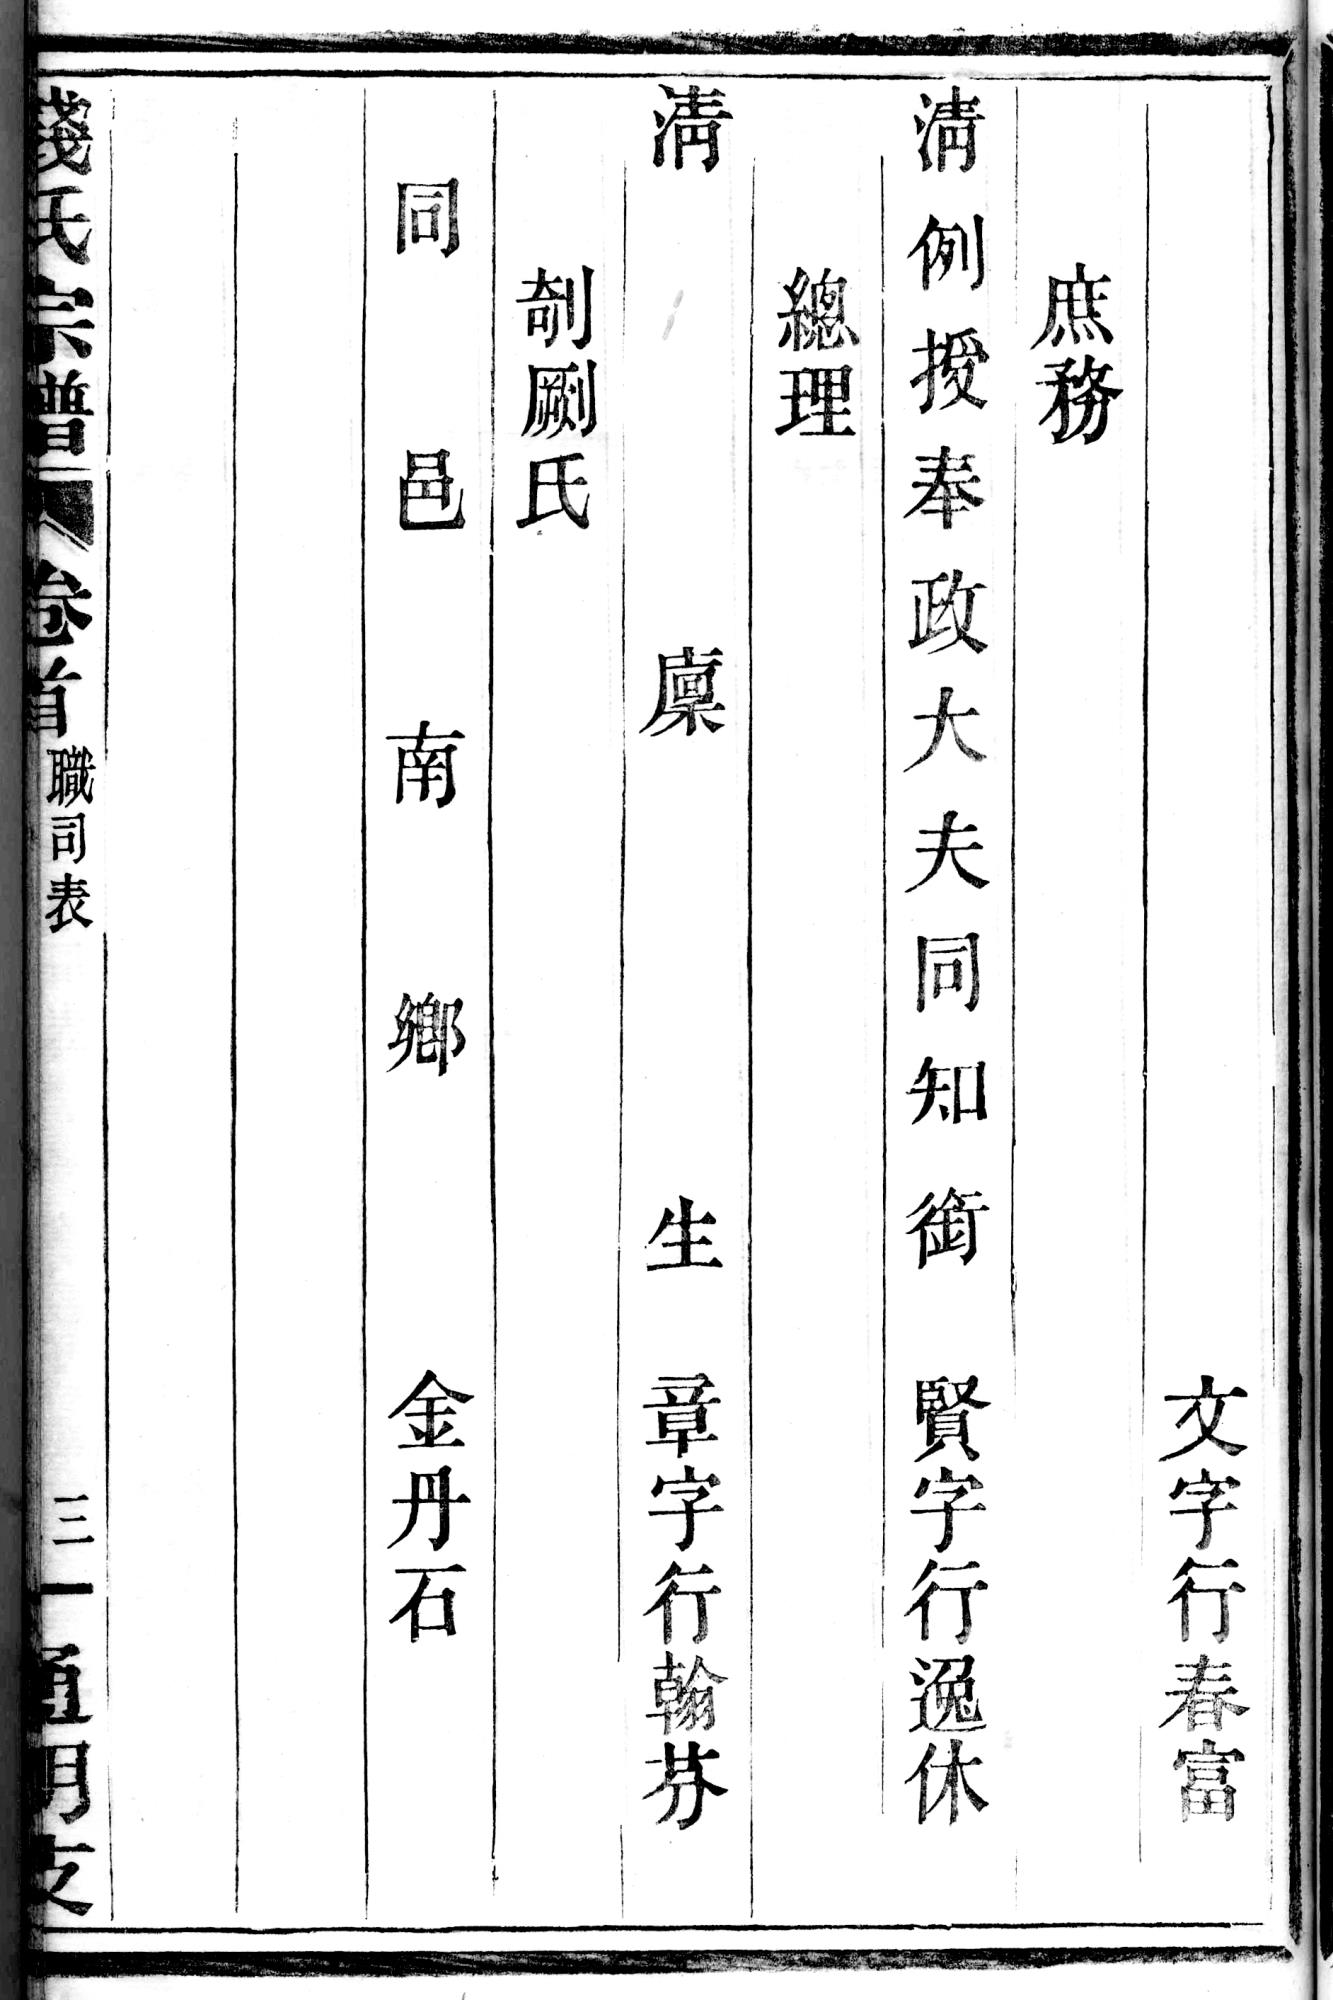 文字行春富
庶務
清例授奉政大夫同知銜 賢字行逸休
總理
清 廩 生 章字行翰芬
剞劂氏
同邑南鄉 金丹石
錢氏宗譜 卷首 職司表 三 通明支